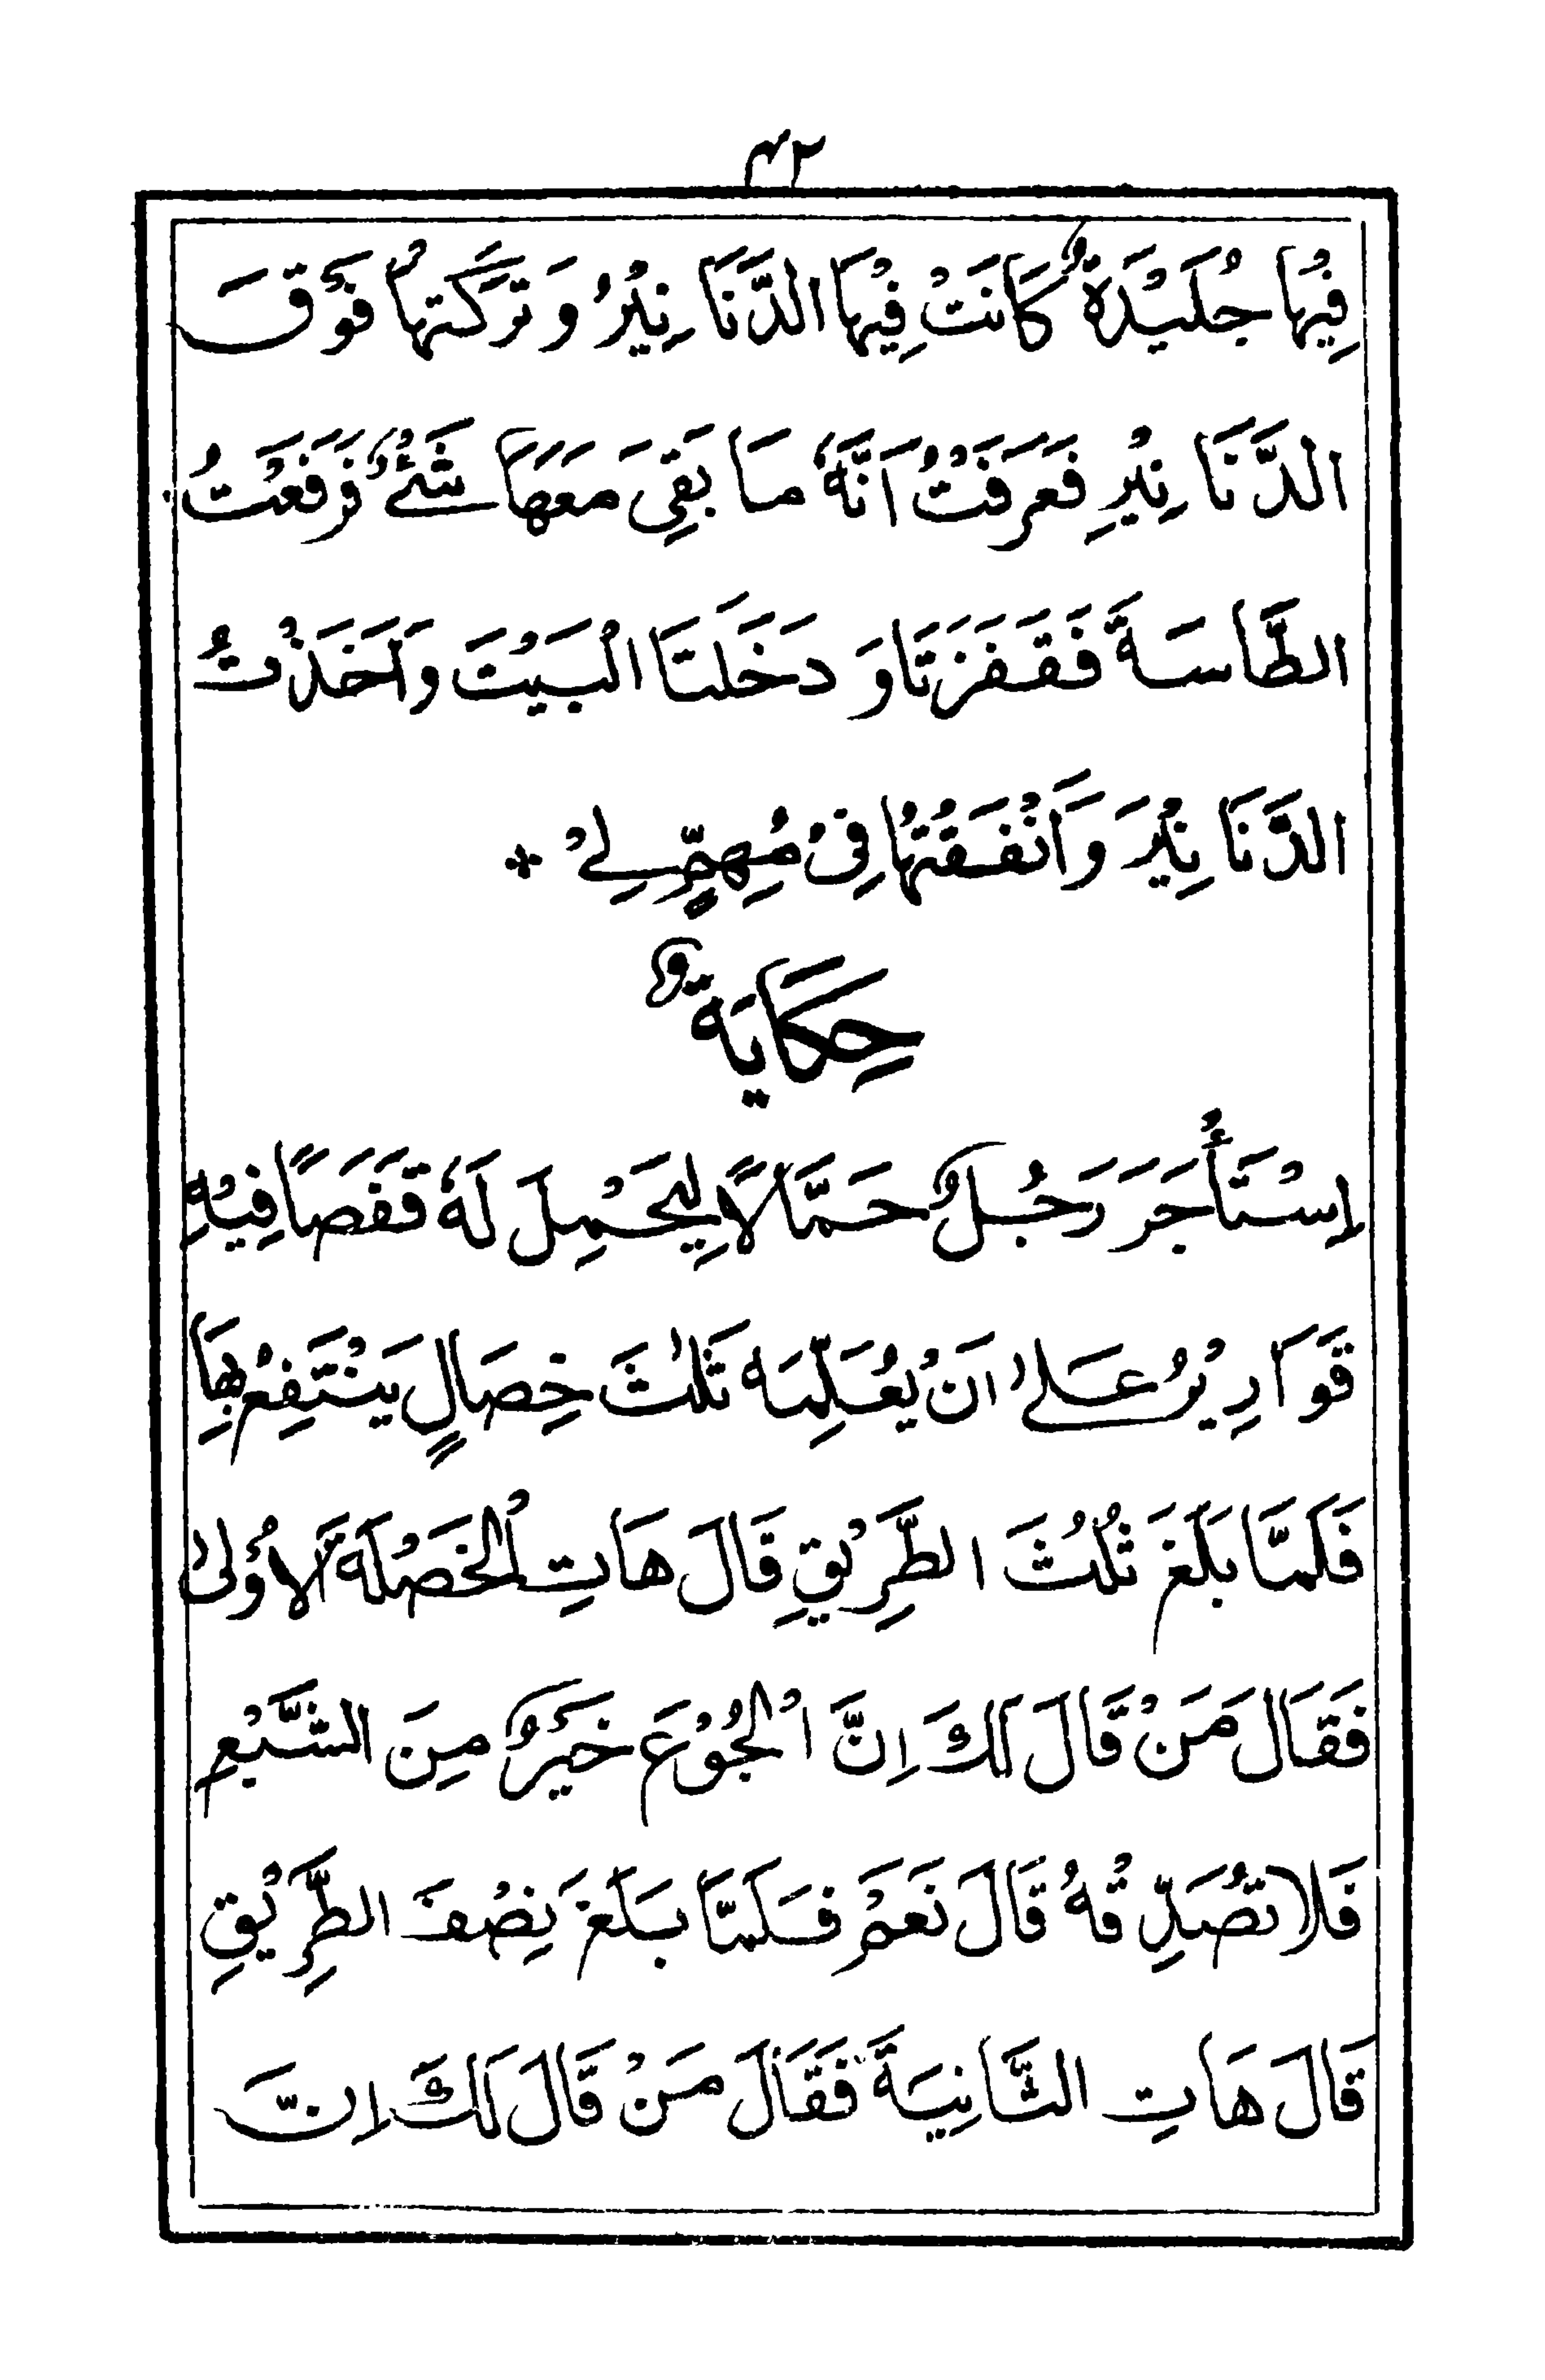 ٤٢
فِيْهَا جُلَيْدَةٌ كَانَتْ فِيْهَا الدَّنَانِيْرُ وَ تَرَكَتْهَا فَوْقَ
الدَّنَانِيْرِ فَعَرَفْتُ اَنَّهٗ مَا بَقِیَ مَعَهَا شَیْءٌ فَرَفَعْتُ
الطَّاسَةَ فَقَفَزَتَا وَ دَخَلَتَا الْبَيْتَ وَاَخَذْتُ
الدَّنَانِيْرَ وَاَنْفَقْتُهَا فِیْ مُهِمٍّ لِیْ ۞
حِكَايَةٌ
اِسْتَأْجَرَ رَجُلٌ حَمَّالًا لِيَحْمِلَ لَهٗ قَفَصًا فِيْهِ
قَوَارِيْرُ عَلٰى اَنْ يُعَلِّمَهٗ ثَلٰثَ خِصَالٍ يَنْتَفِعُ بِهَا
فَلَمَّا بَلَغَ ثُلُثَ الطَّرِيْقِ قَالَ هَاتِ الْخَصْلَةَ الْاُوْلٰى
فَقَالَ مَنْ قَالَ لَكَ اِنَّ الْجُوْعَ خَيْرٌ مِنَ الشَّبْعِ
فَلَا تُصَدِّقْهُ قَالَ نَعَمْ فَلَمَّا بَلَغَ نِصْفَ الطَّرِيْقِ
قَالَ هَاتِ الثَّانِيَةَ فَقَالَ مَنْ قَالَ لَكَ اِنَّ